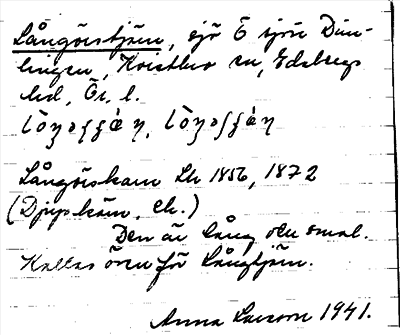 Långörstjärn, sjö Ö sjön Dun-
lingen, Kvistbro sn, Edsbergs
hd, Ör. l.
Långörskärn Lh 1856, 1872
(Djupkärn, ek.)
Den är lång och smal.
Kallas även för Långtjärn.
Anna Larsson 1941.